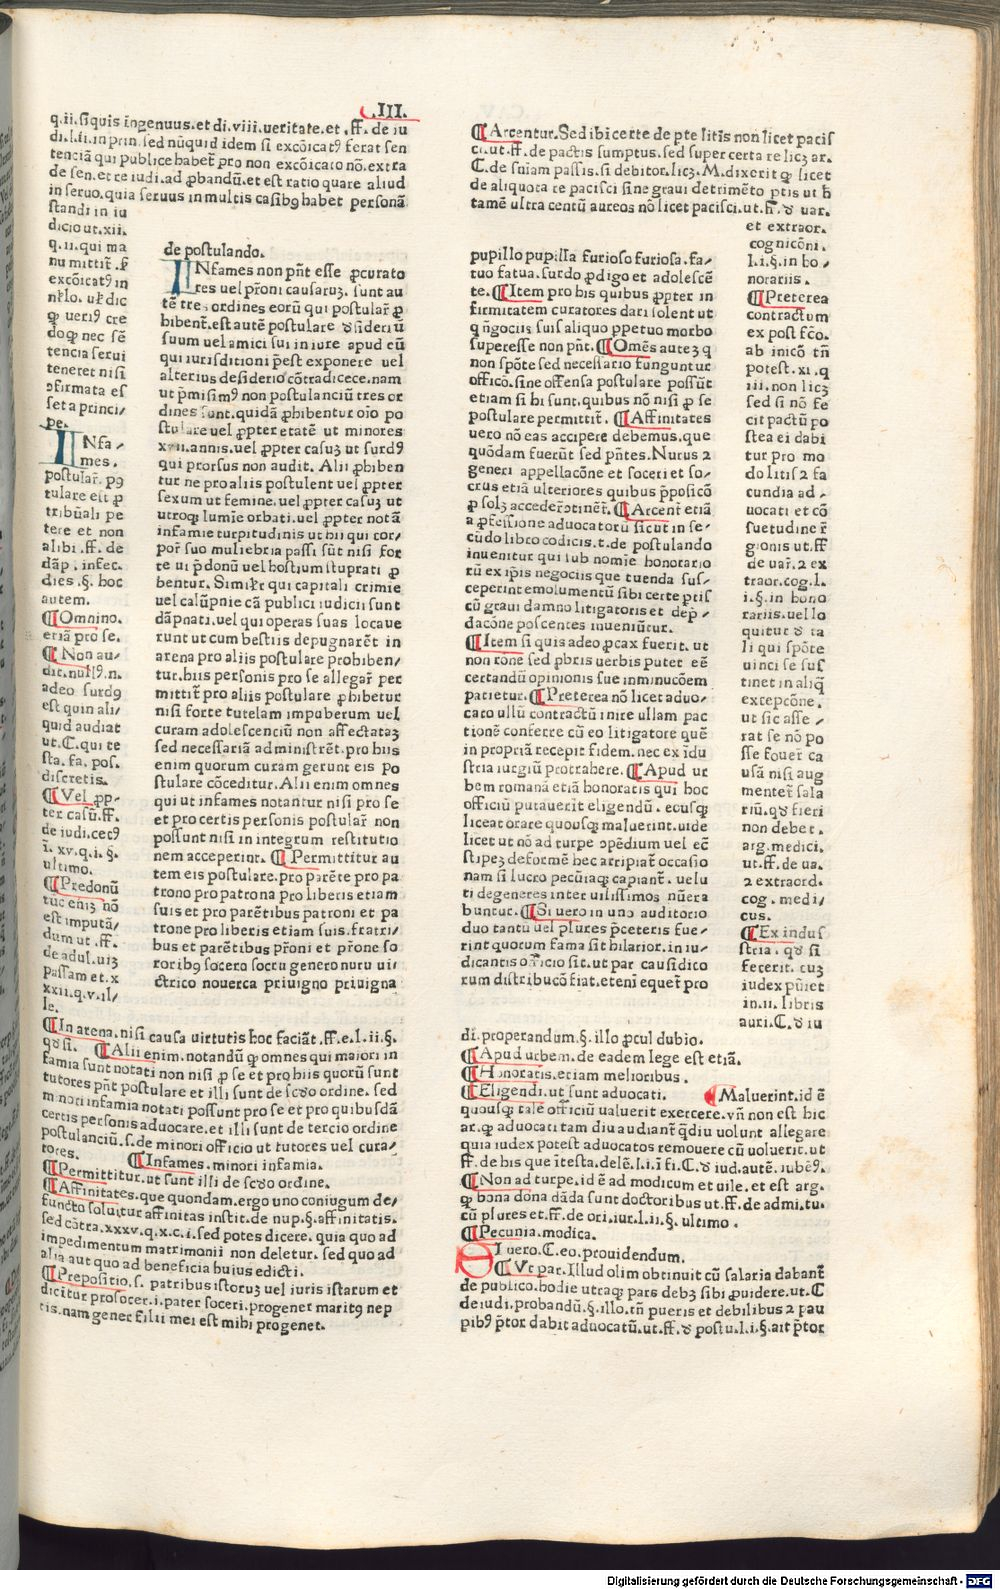 .III.
q.ii.si quis ingenuus.et di.viii.veritate.et .ff. de iu
di.l.ii.in prin.sed nũquid idem si excõicatꝰ ferat sen
tenciã qui publice habet᷑ pro non excõicato nõ.extra
de sen.et re iudi.ad ꝓbandũ.et est ratio quare aliud
in seruo.quia seruus in multis casibꝰ habet personã
standi in iu
dicio ut.xii.
q.ii.qui ma
nu mittit᷑.
excõicatꝰ in
dic
ueriꝰ cre
nec sẽ
tencia serui
teneret nisi
ꝯfirmata es
set a princi/
pe.
INfa/
mes.
postular᷑.
tulare est ꝓ
tribũali pe
tere et non
alibi .ff. de
dãp.infec.
dies.§.hoc
autem.
¶Omnino.
etiã pro se.
¶Non au/
dit.nullꝰ.n.
adeo surdꝰ
est quin ali/
quid audiat
ut.C.qui te
sta.fa.pos.
discretis.
¶Vel ꝓp/
ter casũ.ff.
de iudi.cetꝰ
ĩ.xv.q.i.§.
ultimo.
¶Predonũ
nõ
est imputã/
dum ut.ff.
de adul.
passam et.x
xxii.q.v.il/
le.
de postulando.
INfames non pñt esse ꝓcurato
res uel pr̃oni causarũ. sunt au
tẽ tres ordines eorũ qui postular᷑ ꝓ
hibent᷑.est autẽ postulare
suum uel amici sui in iure apud eũ
qui iurisditioni p̃est exponere uel
alterius desiderio cõtradicece.nam
ut p̃misimꝰ non postulanciũ tres or
dines sunt.quidã ꝓhibentur oĩo po
stulare uel ꝓpter etatẽ ut minores
xvii.annis.uel ꝓpter casuꝫ ut surdꝰ
qui prorsus non audit. Alii ꝓhiben
tur ne pro aliis postulent uel ꝓpter
sexum ut femine.uel ꝓpter casuꝫ ut
utroqꝫ lumĩe orbati.uel ꝓpter notã
infamie turpitudinis ut hii qui cor/
por᷑ suo muliebria passi sũt nisi for
te ui p̃donũ uel hostium stuprati ꝓ
bentur. qui capitali crimie
uel calũpnie cã publici iudicii sunt
dãpnati.uel qui operas suas locaue
runt ut cum bestiis depugnarẽt in
arena pro aliis postulare prohiben/
tur.hiis personis pro se allegar᷑ per
mittit᷑ pro aliis postulare ꝓhibetur
nisi forte tutelam impuberum uel
curam adolescenciũ non affectataꝫ
sed necessariã administrẽt.pro hiis
enim quorum curam gerunt eis po
stulare cõceditur.Alii enim omnes
qui ut infames notantur nisi pro se
et pro certis personis postular᷑ non
possunt nisi in integrum restitutio
nem acceperint. ¶Permittitur au
tem eis postulare.pro parẽte pro pa
trono pro patrona pro liberis etiam
suis et pro parẽtibus patroni et pa
trone pro liberis etiam suis.fratri/
bus et parẽtibus pr̃oni et pr̃one so
roribꝰ socero socru genero nuru ui/
ctrico nouerca priuigno priuigna
¶In arena.nisi causa uirtutis hoc faciãt.ff.e.l.ii.§.
¶Alii enim.notandũ omnes qui maiori in
famia sunt notati non nisi ꝓ se et pro hiis quorũ sunt
tutores pñt postulare et illi sunt de scd̃o ordine. sed
minori infamia notati possunt pro se et pro quibusdã
certis personis aduocare.et illi sunt de tercio ordine
postulanciũ.s.de minori officio ut tutores uel cura/
tores. ¶Infames.minori infamia.
¶Permittitur.ut sunt illi de scd̃o ordine.
¶Affinitates.que quondam.ergo uno coniugum de/
functo soluitur affinitas instit.de nup.§.affinitatis.
sed cõtra.xxxv.q.x.c.i.sed potes dicere.quia quo ad
impedimentum matrimonii non deletur. sed quo ad
alia aut quo ad beneficia huius edicti.
¶Prepositio.s. patribus istoruꝫ uel iuris istarum et
dicitur prosocer.i.pater soceri.progener maritꝰ nep
tis.nam gener filii mei est mihi progener.
¶Arcentur.Sed ibi certe de pte litis non licet pacis
ci.ut.ff.de pactis sumptus.sed super certa re licꝫ ar.
C.de suiam passis.si debitor.licꝫ.M.dixerit licet
de aliquota re pacisci sine graui detrimẽto ptis ut h
tamẽ ultra centũ aureos nõ licet pacisci.ut.ff. uar.
et extraor.
cognicõni.
l.i.§.in ho/
norariis.
¶Preterea
contractum
ex post fc̃o.
ab inicõ tñ
potest.xi.q
iii.non licꝫ
sed si nõ fe
cit pactũ po
stea ei dabi
tur pro mo
do litis 2 fa
cundia ad/
uocati et cõ
suetudine r̃
gionis ut.ff
de uar᷑.2 ex
traor.cog.l.
i.§.in hono
rariis.uel lo
quitur ta
li qui spõte
uinci se sus
tinet in aliq̃
excepcõne.
ut sic asse/
rat se nõ po
sse fouer᷑ ca
usã nisi aug
mentet᷑ sala
riũ. fieri
non debet.
arg.medici.
ut.ff.de ua.
2 extraord.
cog.medi/
cus.
¶Ex indus
stria. si
fecerit. cuꝫ
iudex pũiet
in.ii.libris
auri.C. iu
pupillo pupilla furioso furiosa.fa/
tuo fatua.surdo ꝓdigo et adolescẽ
te.¶Item pro his quibus ꝓpter in
firmitatem curatores dari solent ut
q ñgociis suis aliquo ꝑpetuo morbo
superesse non pñt.¶Omẽs auteꝫ q
non spõte sed necessario funguntur
officõ.sine offensa postulare possũt
etiam si hi sunt.quibus nõ nisi ꝓ se
postulare permittit᷑.¶Affinitates
uero nõ eas accipere debemus.que
quõdam fuerũt sed pñtes.Nurus 2
generi appellacõne et soceri et so/
crus etiã ulteriores quibus ꝓposicõ
ꝓ solꝫ accedere ꝯtinet᷑.¶Arcent᷑ etiã
a ꝓfessione aduocatorũ sicut in se/
cũdo libro codicis.t.de postulando
inuenitur qui sub nomĩe honorario
rũ ex ip̃is negociis que tuenda sus/
ceperint emolumentũ sibi certe ptis
cũ graui damno litigatoris et dep̃/
dacõne poscentes inueniũtur.
¶Item si quis adeo ꝓcax fuerit.ut
non rõne sed ꝓbris uerbis putet eẽ
certandũ opinionis sue inminucõem
patietur.¶Preterea nõ licet aduo/
cato ullũ contractũ inire ullam pac
tionẽ conferre cũ eo litigatore quẽ
in propriã recepit fidem.nec ex ĩdu
stria iurgiũ protrahere.¶Apud ur
bem romanã etiã honoratis qui hoc
officiũ putauerit eligendũ.ecusqꝫ
liceat orare quousqꝫ maluerint.uide
licet ut nõ ad turpe ꝯpẽdium uel eẽ
stipeꝫ deformẽ hec arripiat᷑ occasio
nam si lucro pecũiaqꝫ capiant᷑.uelu
ti degeneres inter uilissimos nũera
buntur.¶Si uero in uno auditorio
duo tantũ uel plures pceteris fue/
rint quorum fama sit hilarior.in iu/
dicantis officio sit.ut par causidico
rum distribucõ fiat.etenĩ equet᷑ pro
di.properandum.§.illo ꝓcul dubio.
¶Apud urbem.de eadem lege est etiã.
¶Honoratis.etiam melioribus.
¶Eligendi.ut sunt aduocati. ¶Maluerint.id ẽ
quousqꝫ tale officiũ ualuerit exercere.vñ non est hic
ar. aduocati tam diu audiant᷑ q̃diu uolunt allegare
quia iudex potest aduocatos remouere cũ uoluerit.ut
ff.de his que ĩtesta.delẽ.l.i.ĩ fi.C. iud.autẽ.iubẽꝰ.
¶Non ad turpe.id ẽ ad modicum et uile.et est arg.
bona dona dãda sunt doctoribus ut.ff.de admi.tu.
cũ plures et.ff.de ori.iur.l.ii.§.ultimo.
¶Pecunia.modica.
SI uero.C.eo.prouidendum.
¶Vt par.Illud olim obtinuit cũ salaria dabant᷑
de publico.hodie utraqꝫ pars debꝫ sibi ꝓuidere.ut.C
de iudi.probandũ.§.illo.tñ pueris et debilibus 2 pau
pibꝰ p̃tor dabit aduocatũ.ut.ff. postu.l.i.§.ait p̃tor
Digitalisierung gefördert durch die Deutsche Forschungsgemeinschaft - DFG